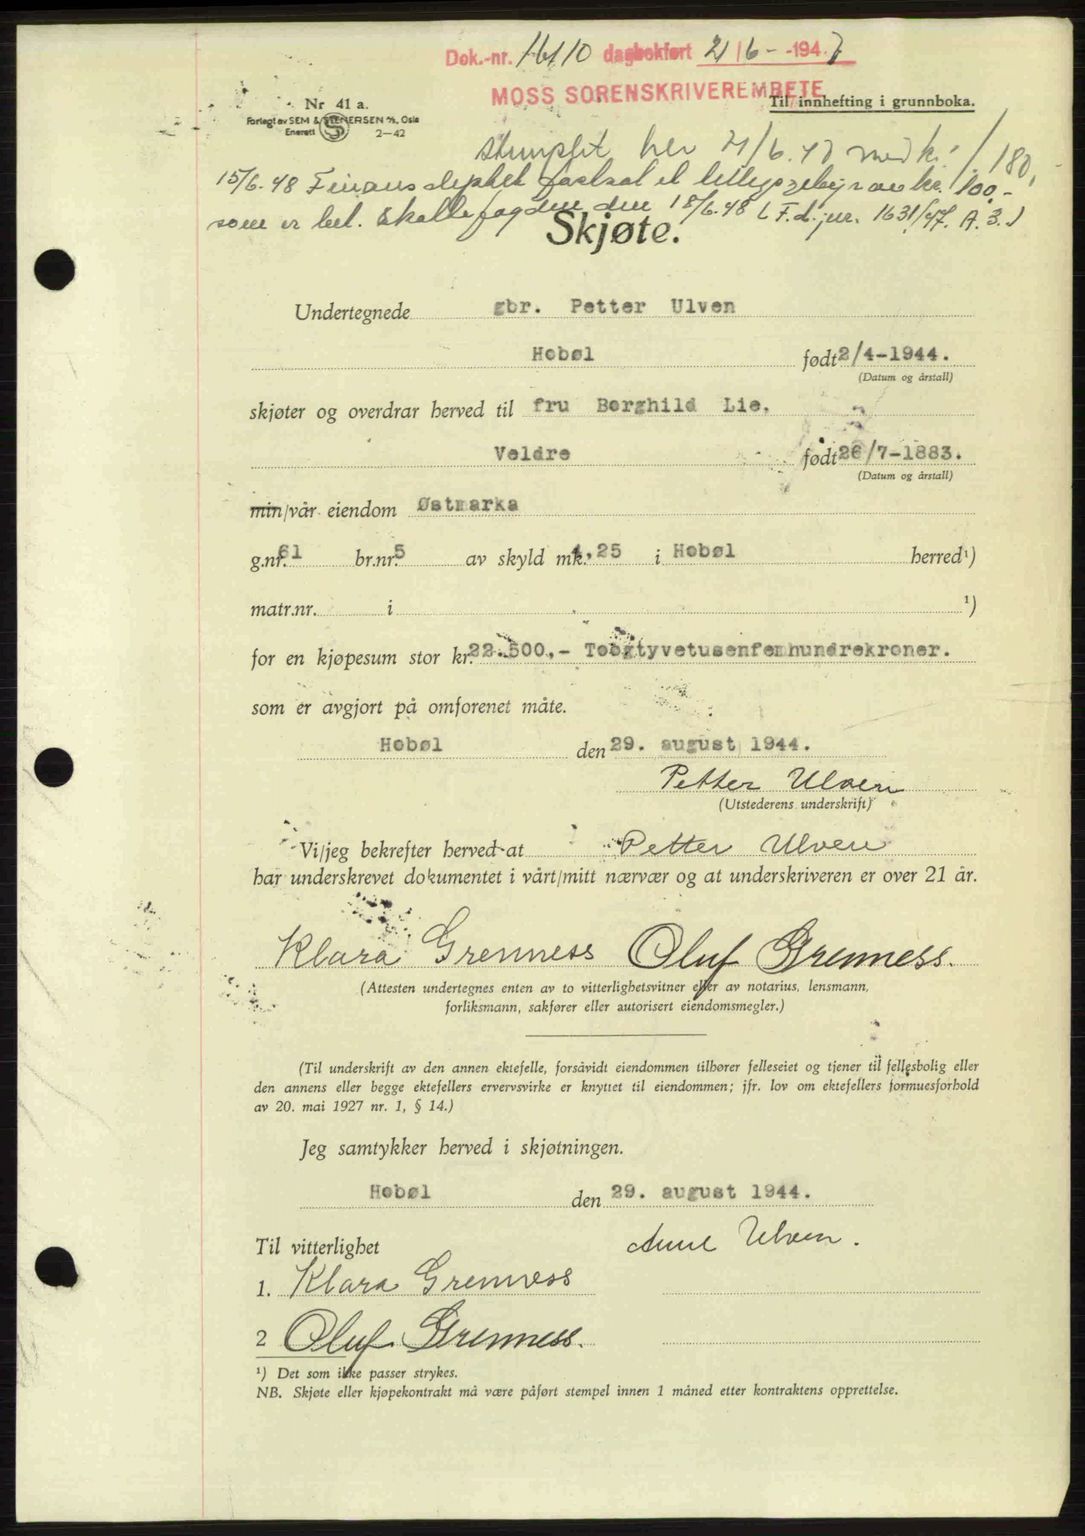 Dok.-nr. 1610 dagbokført 21/6- -1947
MOSS SORENSKRIVEREMBETE
Til innhefting i grunnboka.
Nr 41 a.
Forlagt av SEM & STENERSEN A/S, Oslo
Enerett S 2-42
Stemplet her 21/6.47 med kr. 180,-
15/6.48 Finansdeptet fastsat et tilleggsgebyr av kr. 100,-
som er bet. Skattefogden den 18/6.48 ( F.d. jnr. 1631/47. A. 3.)
Skjøte.
Undertegnede gbr. Petter Ulven
Hobøl født 2/4-1944.
(Datum og årstall)
skjøter og overdrar herved til fru Borghild Lie,
Veldre født 26/7-1883.
(Datum og årstall)
min/vår eiendom Østmarka
g.nr. 61 br.nr. 5 av skyld mk. 4,25 i Hobøl herred¹)
matr.nr. i ¹)
for en kjøpesum stor kr. 22.500,- Toogtyvetusenfemhundrekroner.
som er avgjort på omforenet måte.
Hobøl den 29. august 1944.
Petter Ulven
(Utstederens underskrift)
Vi/jeg bekrefter herved at Petter Ulven
har underskrevet dokumentet i vårt/mitt nærvær og at underskriveren er over 21 år.
Klara Grenness Oluf Grenness.
(Attesten undertegnes enten av to vitterlighetsvitner eller av notarius, lensmann,
forliksmann, sakfører eller autorisert eiendomsmegler.)
(Til underskrift av den annen ektefelle, forsåvidt eiendommen tilhører felleseiet og tjener til fellesbolig eller
den annens eller begge ektefellers ervervsvirke er knyttet til eiendommen; jfr. lov om ektefellers formuesforhold
av 20. mai 1927 nr. 1, § 14.)
Jeg samtykker herved i skjøtningen.
Hobøl den 29. august 1944.
Til vitterlighet Anne Ulven.
1. Klara Grenness
2 Oluf Grenness.
¹) Det som ikke passer strykes.
NB. Skjøte eller kjøpekontrakt må være påført stempel innen 1 måned etter kontraktens opprettelse.